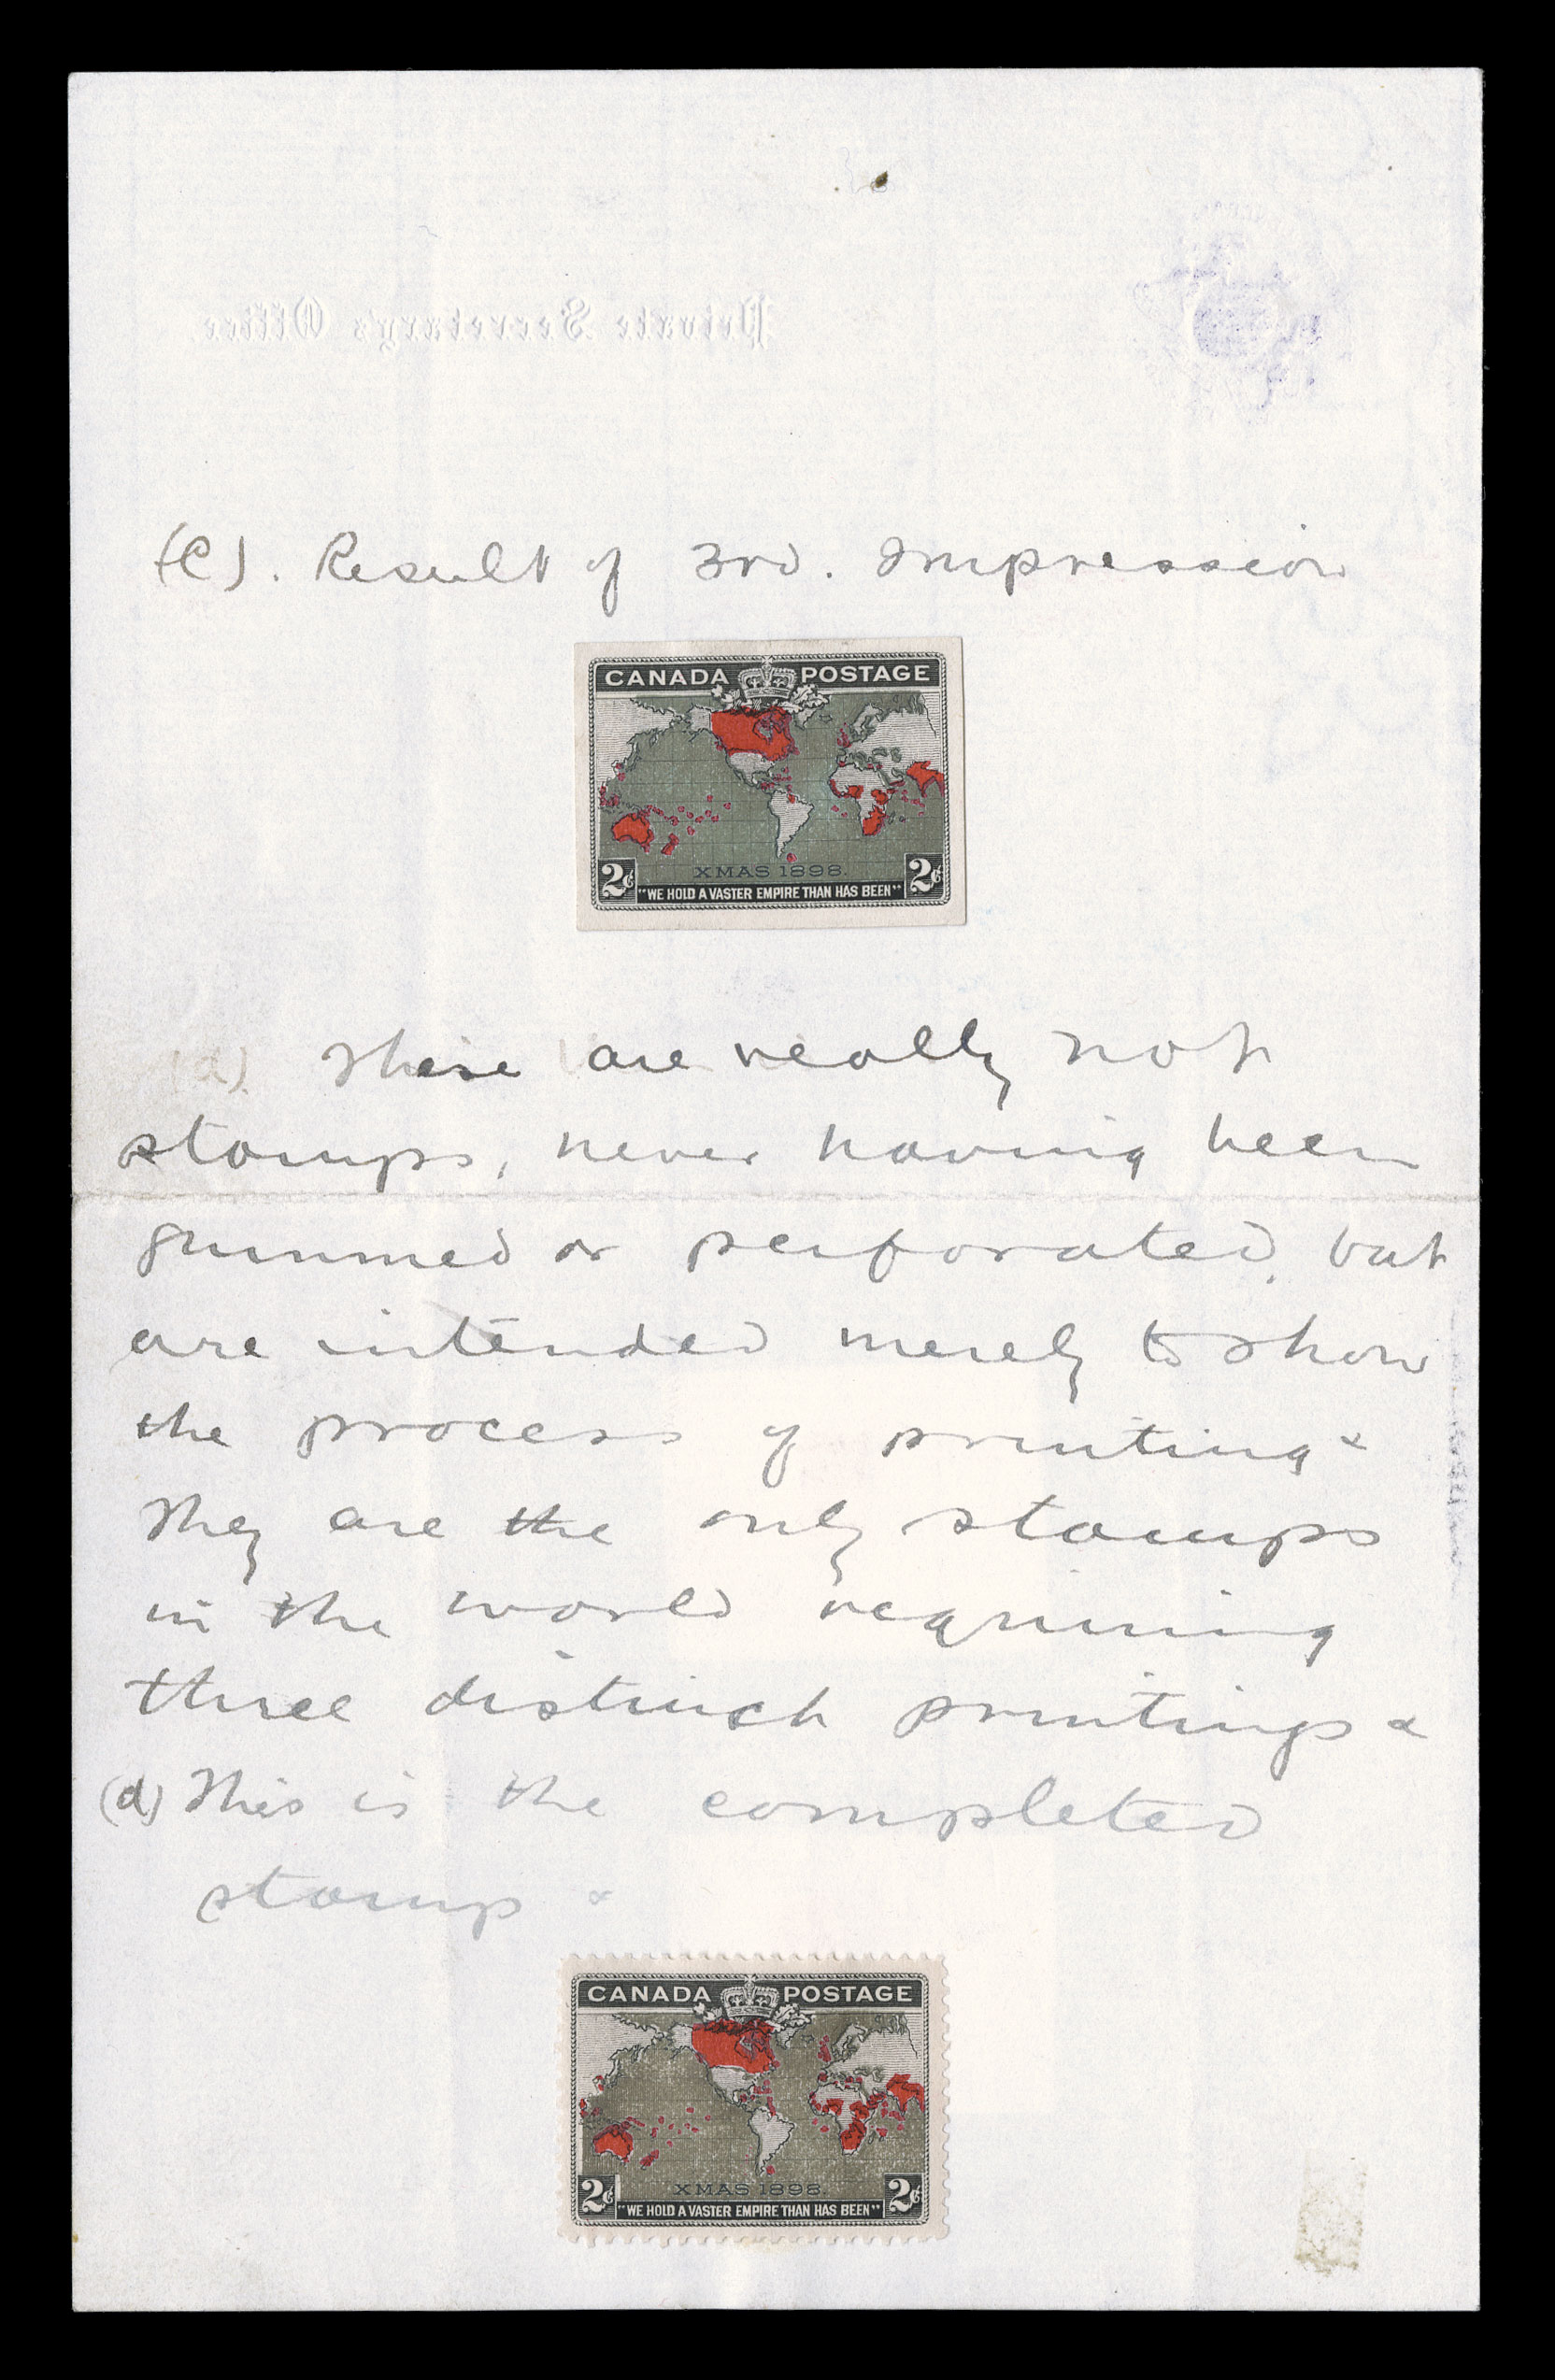 Private Secretary's Office
(C). Result of 3rd. Impression
CANADA POSTAGE
XMAS 1898.
2¢ 2¢
"WE HOLD A VASTER EMPIRE THAN HAS BEEN"
(d) These are really not
stamps, never having been
gummed or perforated, but
are intended merely to show
the process of printing.
They are the only stamps
in the world requiring
three distinct printings.
(d) This is the completed
stamp.
CANADA POSTAGE
XMAS 1898.
2¢ 2¢
"WE HOLD A VASTER EMPIRE THAN HAS BEEN"